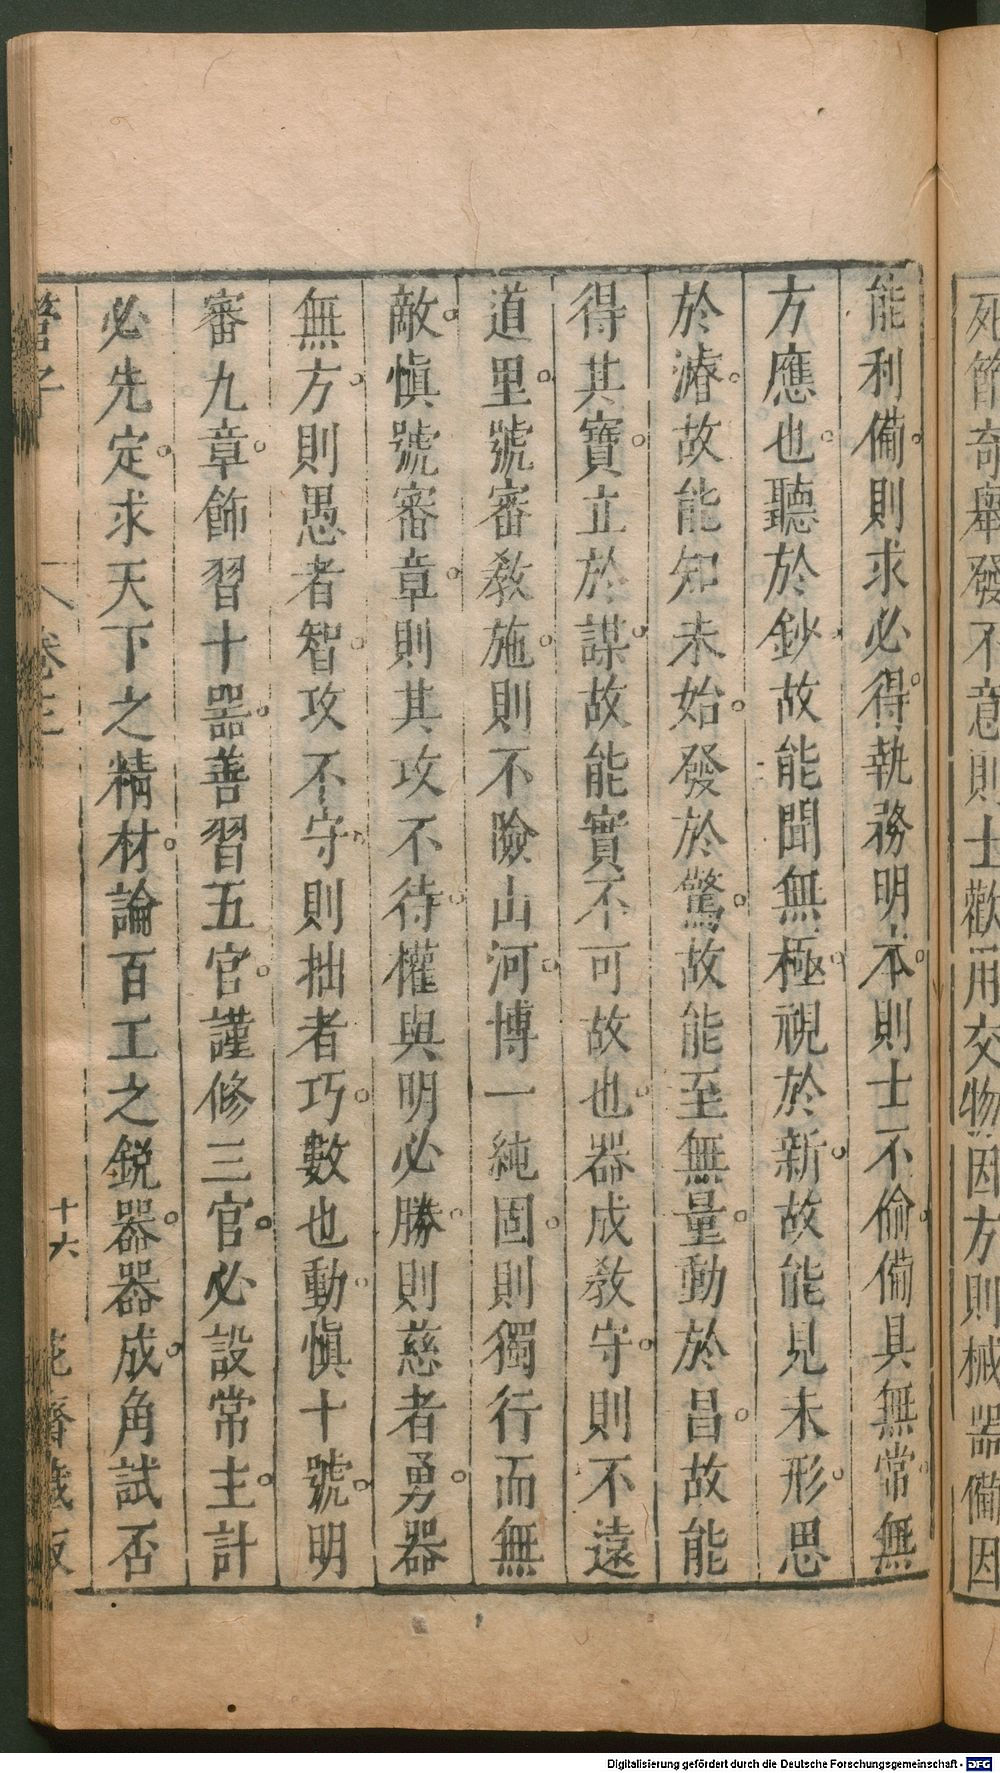 死節奇舉發不意則士歡用交物因方則械器備因
能利備則求必得執務明本則士不偷備具無常無
方應也聽於鈔故能聞無極視於新故能見未形思
於濬故能知未始發於驚故能至無量動於昌故能
得其寶立於謀故能實不可故也器成敎守則不遠
道里號審敎施則不險山河博一純固則獨行而無
敵愼號審章則其攻不待權與明必勝則慈者勇器
無方則愚者智攻不守則拙者巧數也動愼十號明
審九章飾習十器善習五官謹修三官必設常主計
必先定求天下之精材論百工之鋭器器成角試否
管子 卷三 十六 花齋藏板
Digitalisierung gefördert durch die Deutsche Forschungsgemeinschaft - DFG